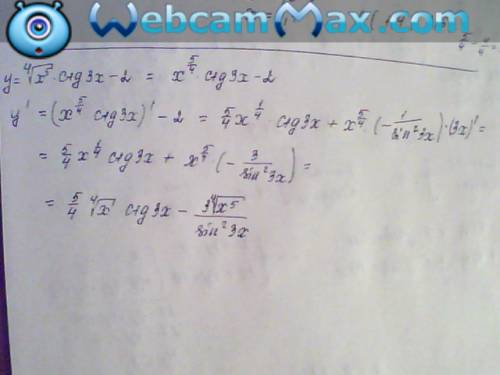 WebcamMax.com
y = ⁴√x⁵ · ctg3x - 2 = x^(5/4) · ctg3x - 2
y' = (x^(5/4) ctg3x)' - 2 = 5/4 x^(1/4) · ctg3x + x^(5/4) · (- 1/sin²3x) · (3x)' =
= 5/4 x^(1/4) ctg3x + x^(5/4) (- 3/sin²3x) =
= 5/4 ⁴√x ctg3x - 3⁴√x⁵/sin²3x